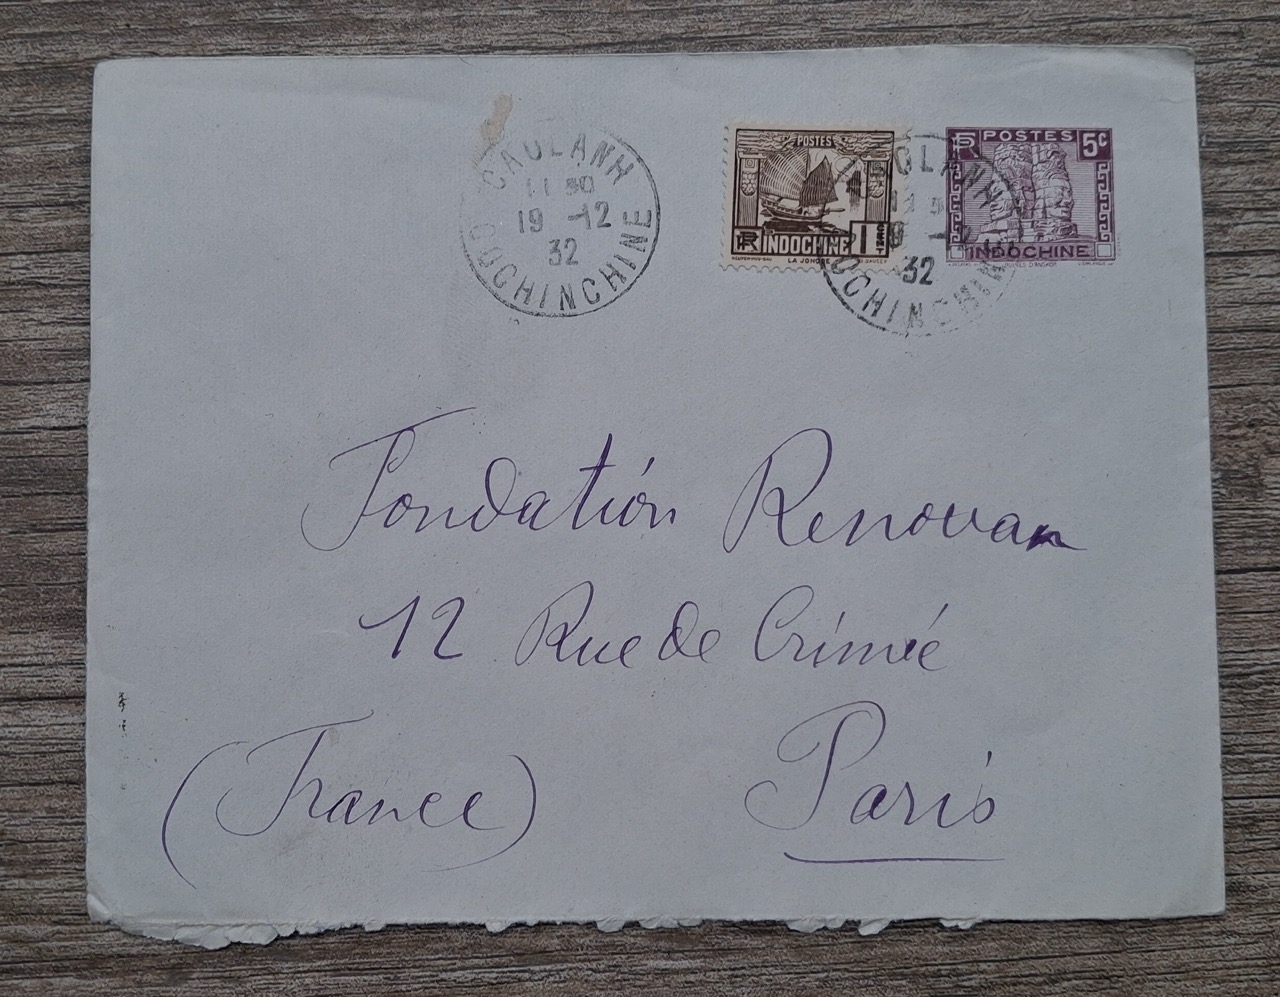 CAOLANH
11 30
19 -12
32
COCHINCHINE
POSTES
RF INDOCHINE 1 CENT
LA JONQUE
CAOLANH
32
COCHINCHINE
RF POSTES 5c
INDOCHINE
RUINES D'ANGKOR
Fondation Renovan
12 Rue de Crimée
(France) Paris